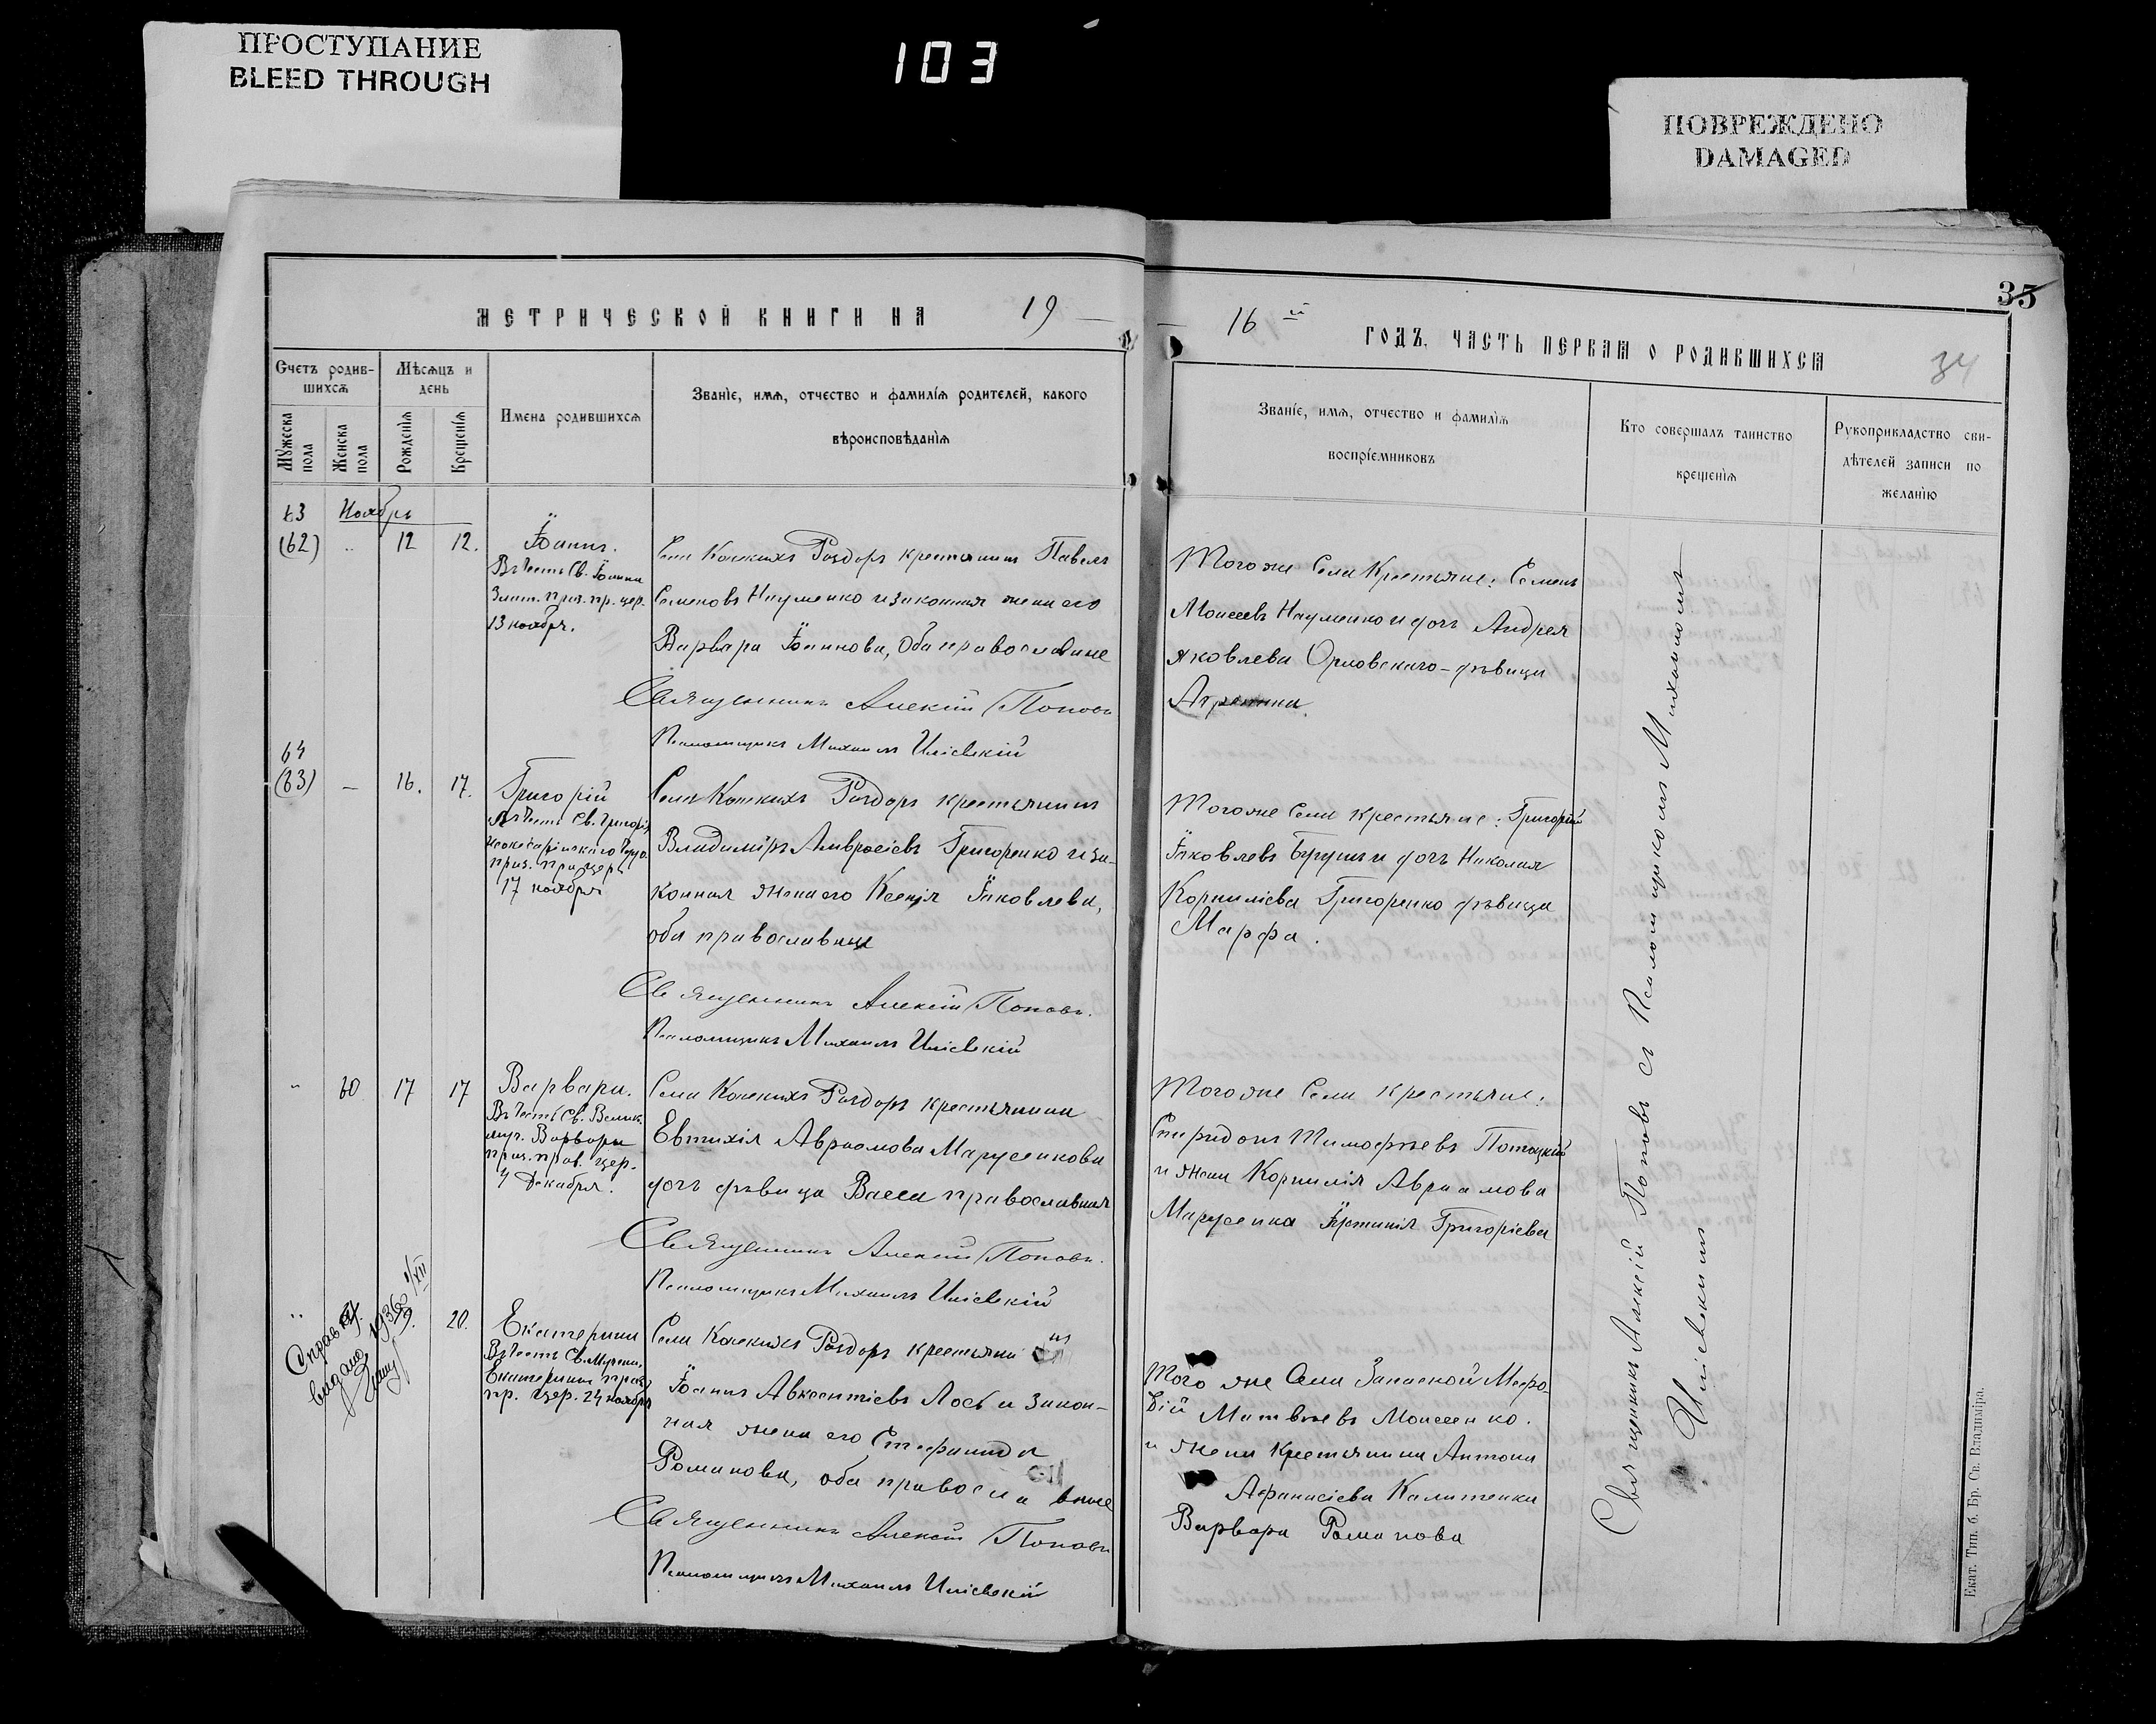 ПРОСТУПАНИЕ
BLEED THROUGH
103
ПОВРЕЖДЕНО
DAMAGED
35
МЕТРИЧЕСКОЙ КНИГИ НА 19
16 й ГОДЪ, ЧАСТЬ ПЕРВАЯ О РОДИВШИХСЯ
34
Счетъ родив-
шихся
Мужеска пола
Женска пола
Мѣсяцъ и
день
Рожденія
Крещенія
Имена родившихся
Званіе, имя, отчество и фамилія родителей, какого
вѣроисповѣданія
Званіе, имя, отчество и фамилія
воспріемниковъ
Кто совершалъ таинство
крещенія
Рукоприкладство сви-
дѣтелей записи по
желанію
63 Ноябрь
(62) " 12 12.
Іоаннъ.
Въ честь Св. Іоанна
Злат. праз. пр. цер.
13 ноября.
Села Конскихъ Раздоръ крестьянинъ Павелъ
Семеновъ Науменко и законная жена его
Варвара Іоаннова, оба православные
Священникъ Алексій Поповъ
Псаломщикъ Михаилъ Иліевскій
Того же Села Крестьяне: Семенъ
Моисеевъ Науменко и дочь Андрея
Яковлева Орловскаго - дѣвица
64
(63) — 16. 17.
Григорій
Въ честь Св. Григорія
праз. пр. цер.
17 ноября
Села Конскихъ Раздоръ крестьянинъ
Владиміръ Амвросіевъ Григоренко и за-
конная жена его Ксенія Іаковлева,
оба православные
Священникъ Алексій Поповъ.
Псаломщикъ Михаилъ Иліевскій
Того же Села крестьяне: Григорій
Іаковлевъ и дочь Николая
Корнилієва Григоренко дѣвица
Марфа.
" 60 17 17
Варвара.
Въ честь Св. Велик.
муч. Варвары
праз. прав. цер.
4 Декабря.
Села Конскихъ Раздоръ крестьянина
Евтихія Авраамова Марусенкова
дочь дѣвица Васса православная
Священникъ Алексій Поповъ.
Псаломщикъ Михаилъ Иліевскій
Того же Села крестьяне:
Спиридонъ Тимофѣевъ Потоцкій
и жена Корнилія Авраамова
Марусенка Іустинія Григоріева
" 20.
видано
Екатерина
Въ честь Св. Мучен.
Екатерины праз.
пр. цер. 24 ноября
Села Конскихъ Раздоръ крестьянинъ
Іоаннъ Авксентіевъ Лось и закон-
ная жена его Стефанида
Романова, оба православные
Священникъ Алексій Поповъ
Псаломщикъ Михаилъ Иліевскій
Того же Села Запасной Мефо-
дій Матвѣевъ Моисеенко.
и жена крестьянина Антона
Афанасіева Калитенки
Варвара Романова
Священникъ Алексій Поповъ съ Псаломщикомъ Михаиломъ
Иліевскимъ
Екат. Тип. б. Бр. Св. Владиміра.